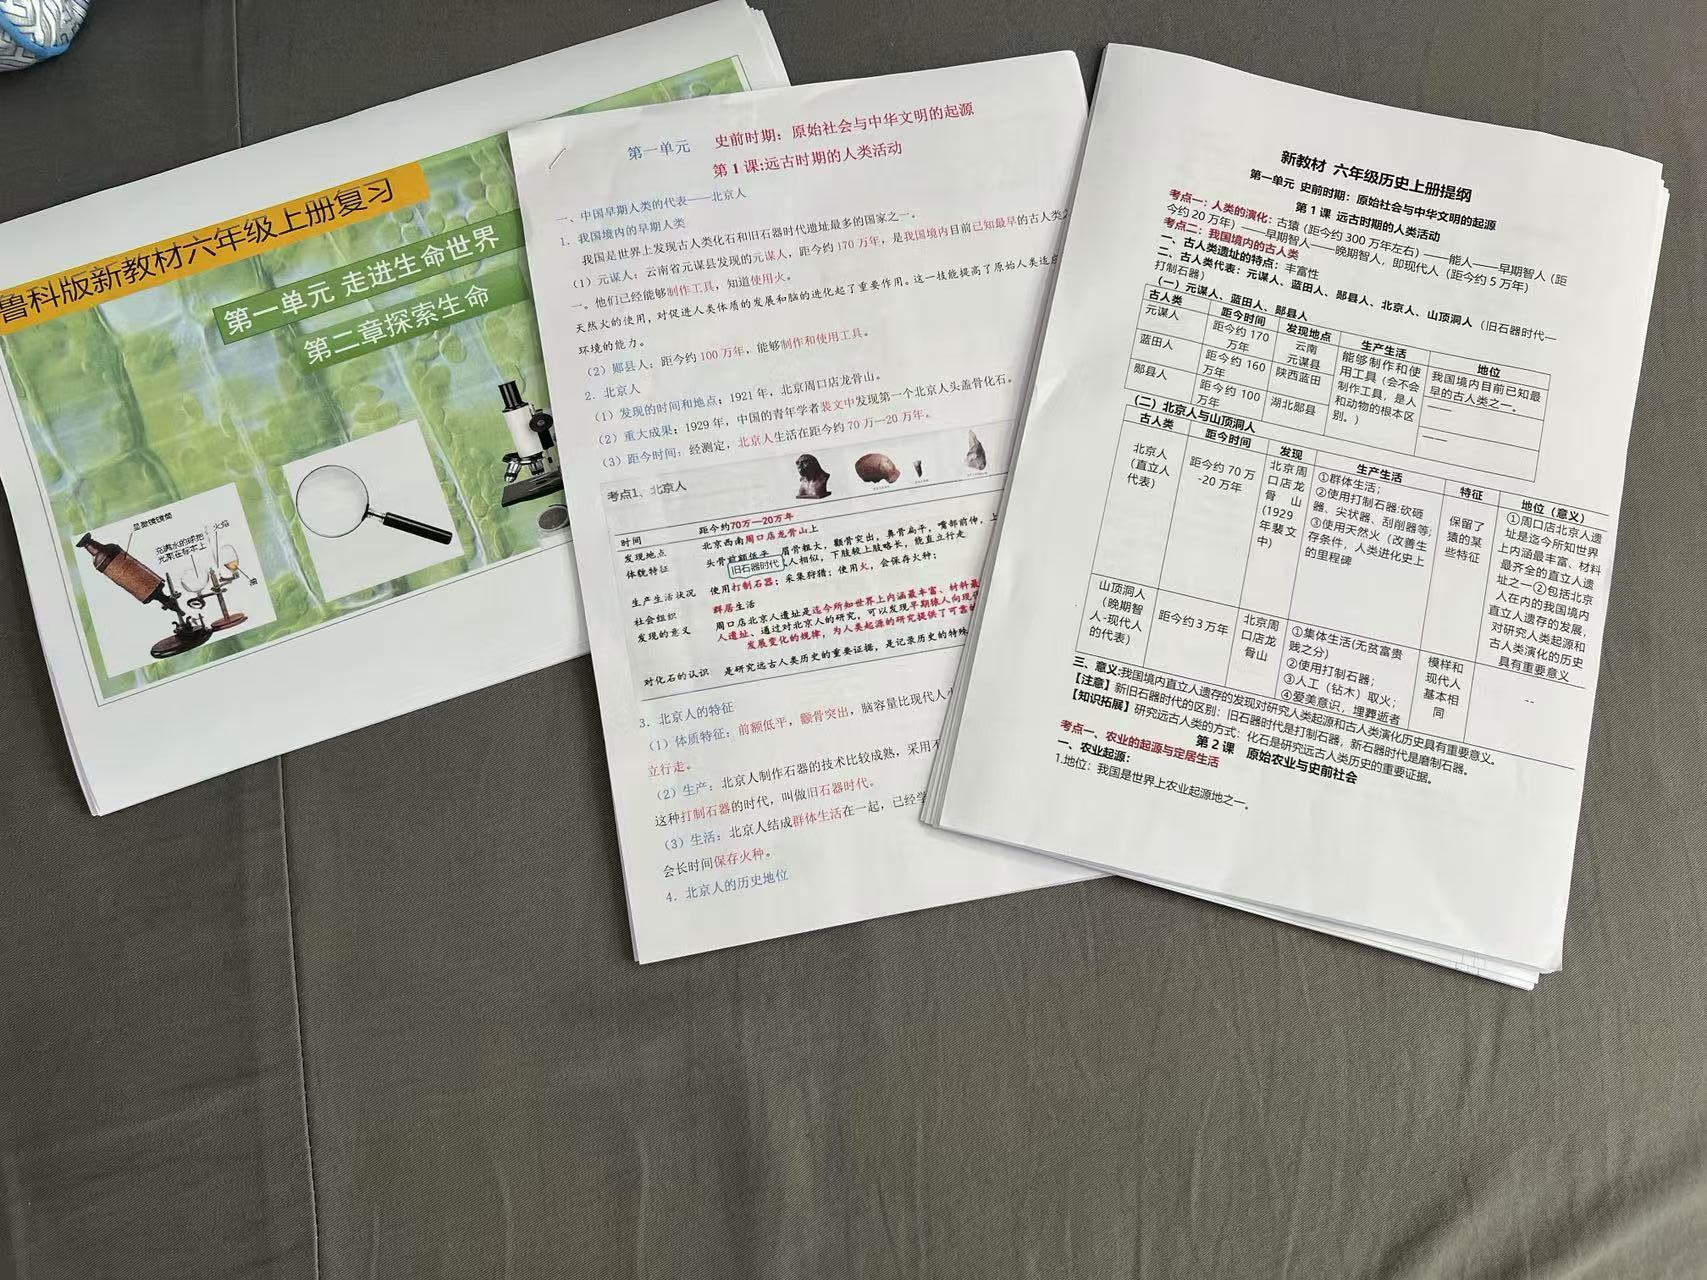 鲁科版新教材六年级上册复习
第一单元 走进生命世界
第二章探索生命
显微镜镜筒
火焰
充满水的球把
光聚在标本上
油
第一单元 史前时期：原始社会与中华文明的起源
第1课:远古时期的人类活动
一、中国早期人类的代表——北京人
1．我国境内的早期人类
我国是世界上发现古人类化石和旧石器时代遗址最多的国家之一。
（1）元谋人：云南省元谋县发现的元谋人，距今约170万年，是我国境内目前已知最早的古人类之
一。他们已经能够制作工具，知道使用火。
天然火的使用，对促进人类体质的发展和脑的进化起了重要作用。这一技能提高了原始人类适应
环境的能力。
（2）郧县人：距今约100万年，能够制作和使用工具。
2．北京人
（1）发现的时间和地点：1921年，北京周口店龙骨山。
（2）重大成果：1929年，中国的青年学者裴文中发现第一个北京人头盖骨化石。
（3）距今时间：经测定，北京人生活在距今约70万—20万年。
考点1、北京人
时间 距今约70万—20万年
发现地点 北京西南周口店龙骨山上
体貌特征 头骨前额低平，眉骨粗大，颧骨突出，鼻骨扁平，嘴部前伸，上
旧石器时代 人相似，下肢较上肢略长，能直立行走
生产生活状况 使用打制石器；采集狩猎；使用火，会保存火种；
社会组织 群居生活
发现的意义 周口店北京人遗址是迄今所知世界上内涵最丰富、材料最
人遗址、通过对北京人的研究，可以发现早期猿人向现
发展变化的规律，为人类起源的研究提供了可靠的
对化石的认识 是研究远古人类历史的重要证据，是记录历史的特殊
3．北京人的特征
（1）体质特征：前额低平，颧骨突出，脑容量比现代人小
立行走。
（2）生产：北京人制作石器的技术比较成熟，采用不
这种打制石器的时代，叫做旧石器时代。
（3）生活：北京人结成群体生活在一起，已经学
会长时间保存火种。
4．北京人的历史地位
新教材 六年级历史上册提纲
第一单元 史前时期：原始社会与中华文明的起源
第1课 远古时期的人类活动
考点一：人类的演化：古猿（距今约300万年左右）——能人——早期智人（距
今约20万年）——早期智人——晚期智人，即现代人（距今约5万年）
考点二：我国境内的古人类
一、古人类遗址的特点：丰富性
二、古人类代表：元谋人、蓝田人、郧县人、北京人、山顶洞人（旧石器时代—
打制石器）
（一）元谋人、蓝田人、郧县人
古人类 距今时间 发现地点 生产生活 地位
元谋人 距今约170万年 云南元谋县 能够制作和使用工具（会不会制作工具，是人和动物的根本区别。） 我国境内目前已知最早的古人类之一。
蓝田人 距今约160万年 陕西蓝田 ——
郧县人 距今约100万年 湖北郧县 ——
（二）北京人与山顶洞人
古人类 距今时间 发现 生产生活 特征 地位（意义）
北京人（直立人代表） 距今约70万-20万年 北京周口店龙骨山(1929年裴文中) ①群体生活；②使用打制石器:砍砸器、尖状器、刮削器等;③使用天然火（改善生存条件，人类进化史上的里程碑 保留了猿的某些特征 ①周口店北京人遗址是迄今所知世界上内涵最丰富、材料最齐全的直立人遗址之一②包括北京人在内的我国境内直立人遗存的发展，对研究人类起源和古人类演化的历史具有重要意义
山顶洞人（晚期智人-现代人的代表） 距今约3万年 北京周口店龙骨山 ①集体生活(无贫富贵贱之分)②使用打制石器；③人工（钻木）取火；④爱美意识，埋葬逝者 模样和现代人基本相同 --
三、意义:我国境内直立人遗存的发现对研究人类起源和古人类演化历史具有重要意义。
【注意】新旧石器时代的区别：旧石器时代是打制石器，新石器时代是磨制石器。
【知识拓展】研究远古人类的方式：化石是研究远古人类历史的重要证据。
第2课 原始农业与史前社会
考点一、农业的起源与定居生活
一、农业起源：
1.地位：我国是世界上农业起源地之一。